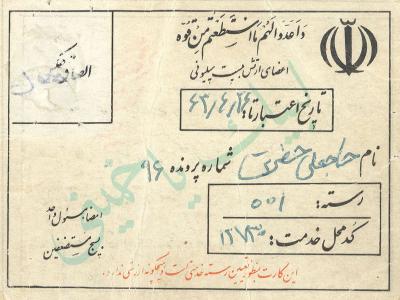 وَاَعِدّوالَهُم مَا اسْتَطَعْتُم مِنْ قُوَّه
اعضای ارتش بیست میلیونی
الصاق عکس
تاریخ اعتبار تا: ۶۳/۶/۲۶
نام حاجعلی حضرت شماره پرونده ۹۶
لبیک یا خمینی
رسته: ۵۵۱
کد محل خدمت: ۱۲۸۳۰
امضاء مسئول واحد
بسیج مستضعفین
این کارت بمنظور تعیین رسته خدمتی است و هیچگونه ارزشی ندارد.